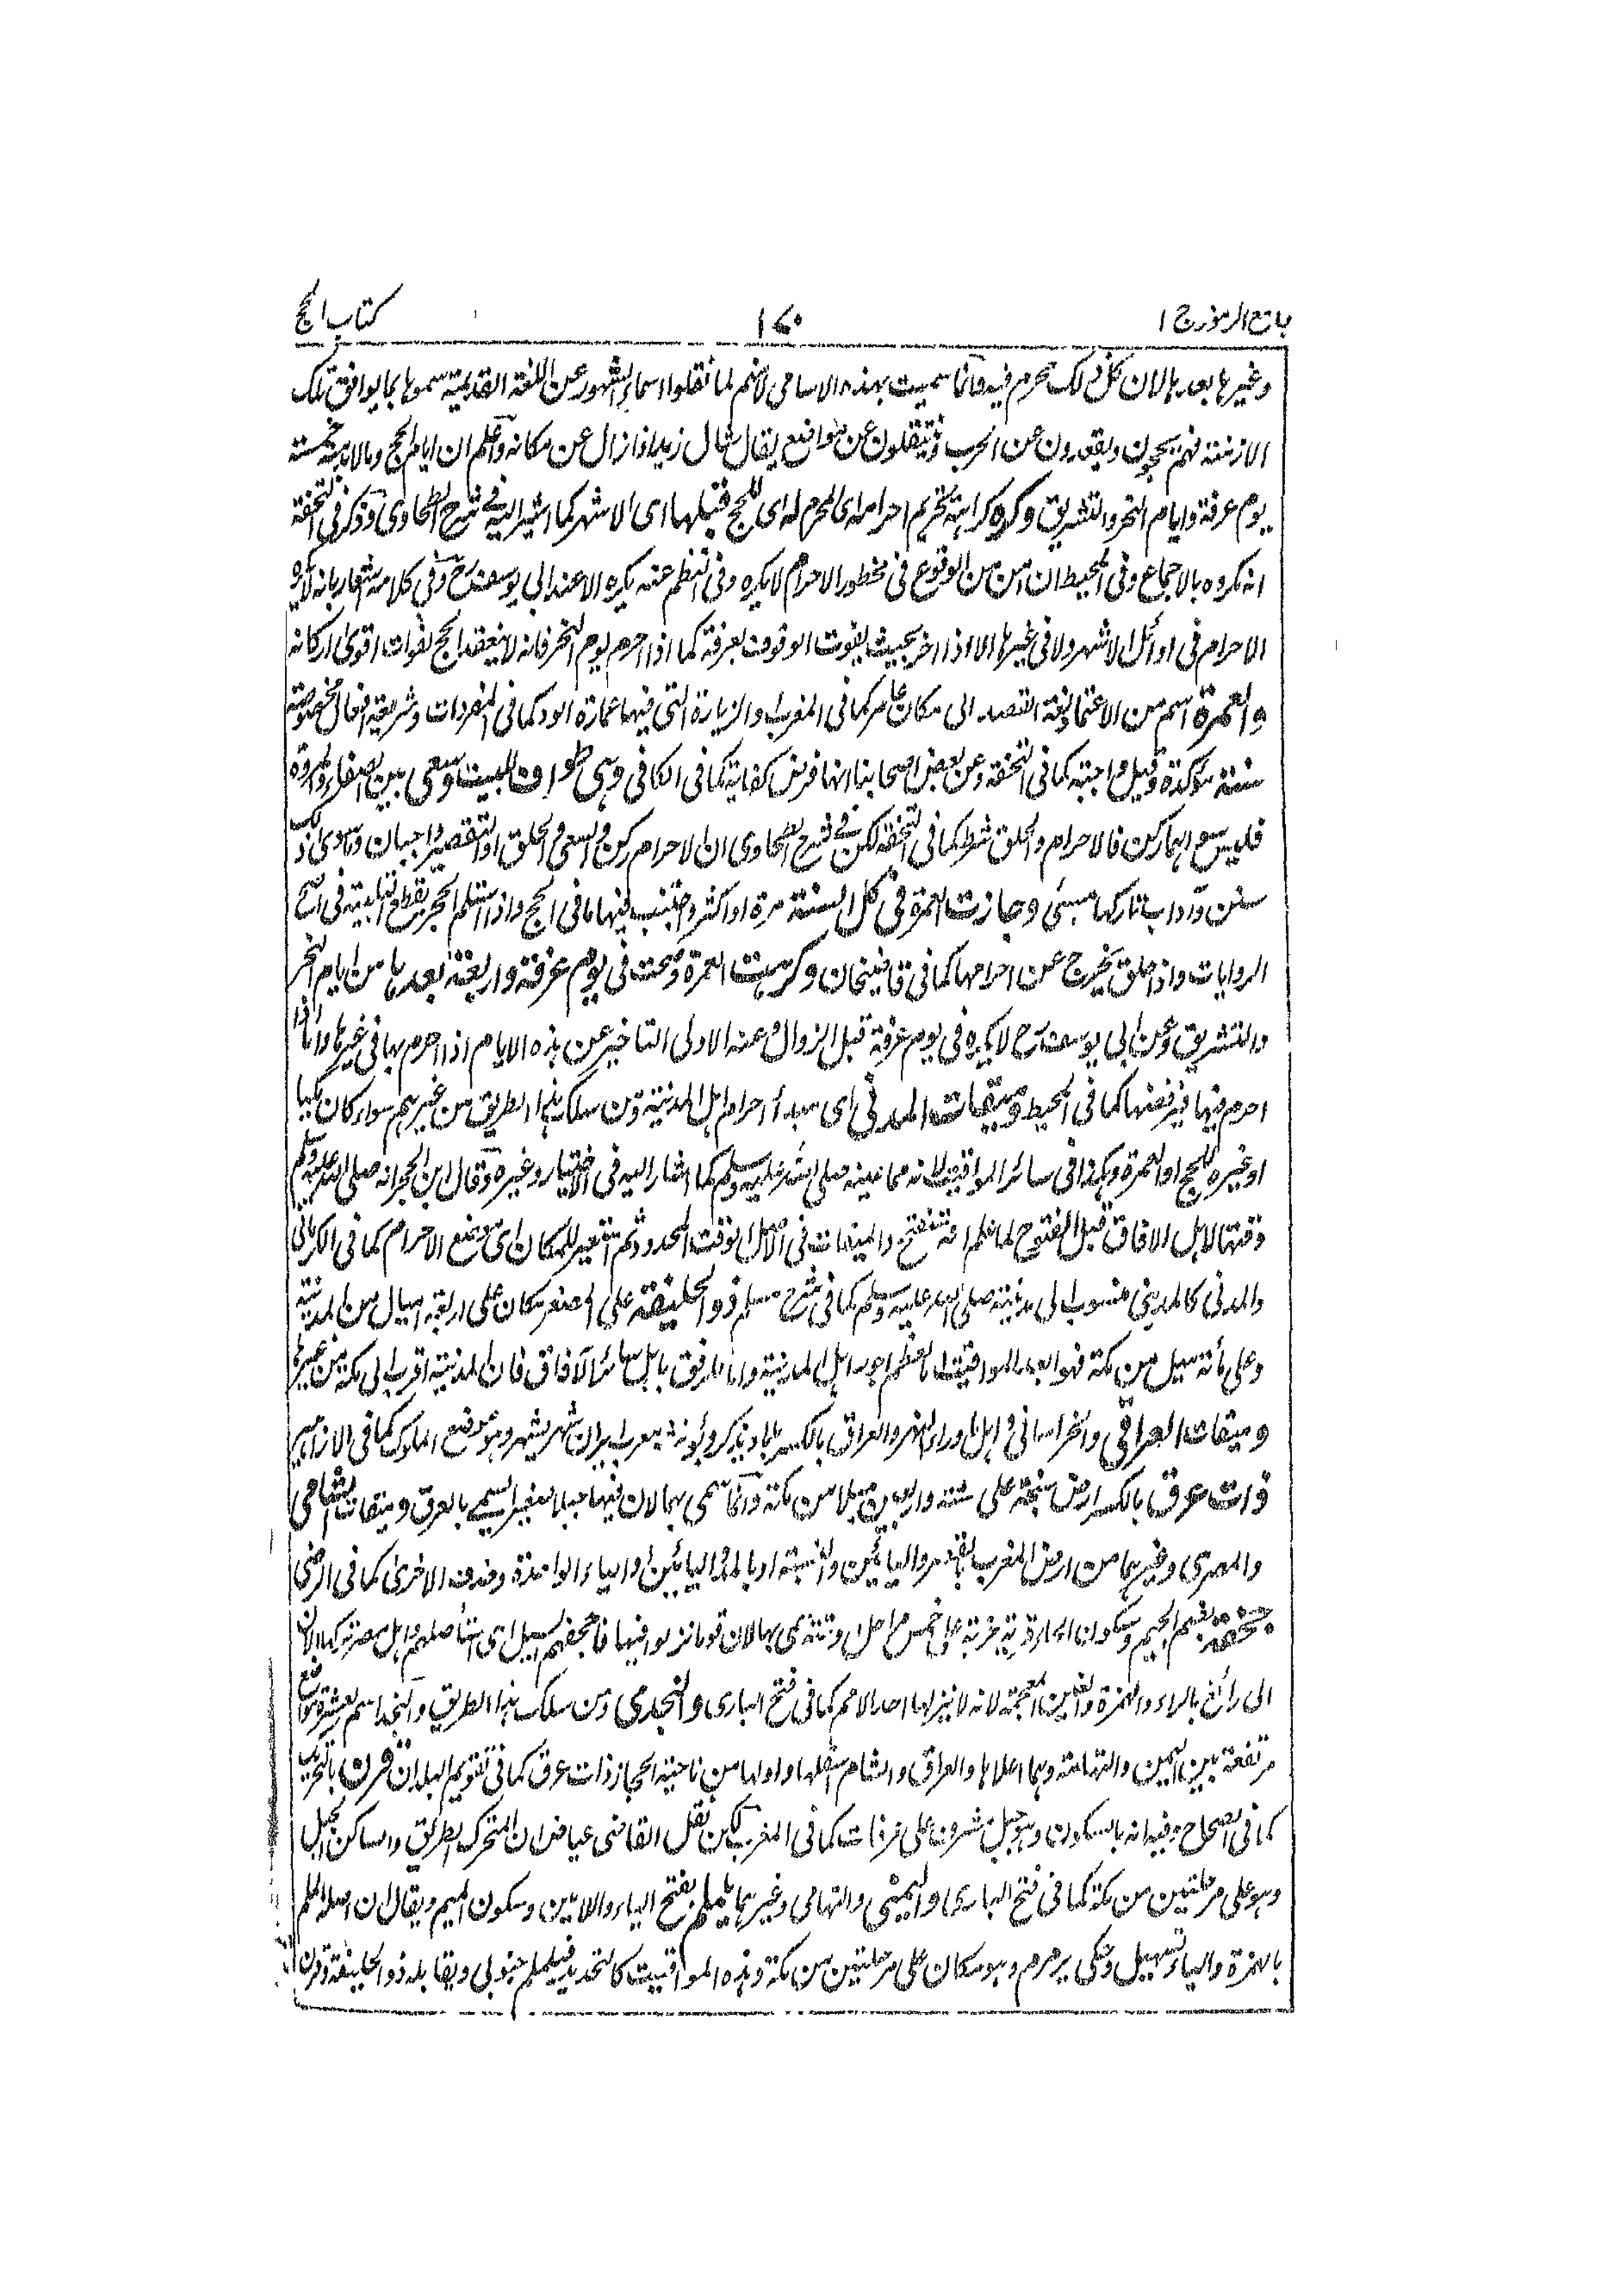 جامع الرموز ج ١
١٧٠
كتاب الحج
وغيرها بعدها لان كل ذلك محرم فيه وانما سميت بهذه الاسامي لانهم لما نقلوا اسماء الشهور عن اللغة القديمة سموها بما يوافق تلك
الازمنة فهم يحجون ويقعدون عن الحرب وينتقلون عن مواضع يقال شال زيد اذا زال عن مكانه واعلم ان ايام الحج خمسة
يوم عرفة وايام النحر والتشريق وكره كراهة تحريم احرامه اى المحرم له اى للحج قبلها اى الاشهر كما اشير اليه في شرح الطحاوى وذكر في التحفة
انه مكروه بالاجماع وفي المحيط ان امن من الوقوع في محظور الاحرام لا يكره وفي النظم عنه يكره الا عند ابي يوسف رح وفي كلامه اشعار بانه لا يكره
الاحرام في اوائل الاشهر ولا في غيرها الا اذا اخر بحيث يفوت الوقوف بعرفة كما اذا احرم يوم النحر فانه لا ينعقد الحج لفوات اقوى اركانه
والعمرة اسم من الاعتمار لغة القصد الى مكان عامر كما في المغرب والزيارة التي فيها عمارة الود كما في المفردات وشريعة افعال مخصوصة
سنة مؤكدة وقيل واجبة كما في التحفة وعن بعض اصحابنا انها فرض كفاية كما في الكافي وهى طواف للبيت وسعى بين الصفا والمروة
فليس سواهما ركن فالاحرام والحلق شرط كما في التحفة لكن في شرح الطحاوى ان الاحرام ركن والسعى والحلق او التقصير واجبان وما سوى ذلك
سنن وآداب تاركها مسيئ وجازت العمرة في كل السنة مرة او اكثر ويجتنب فيها ما في الحج واذا استلم الحجر يقطع التلبية في اصح
الروايات واذا حلق يخرج عن احرامها كما في قاضيخان وكرهت العمرة وصحت في يوم عرفة واربعة بعدها من ايام النحر
والتشريق وعن ابي يوسف رح لا يكره في يوم عرفة قبل الزوال وعنه الاولى التاخير عن هذه الايام اذا احرم بها في غيرها واما اذا
احرم فيها فيرفضها كما في المحيط وميقات المدني اى مبدأ احرام اهل المدينة ومن سلك هذا الطريق من غيرهم سواء كان مكيا
او غيره للحج او العمرة وهكذا في سائر المواقيت لانه مما عينه صلى الله عليه وسلم كما اشار اليه في الاختيار وغيره وقال ابن الحجر انه صلى الله عليه وسلم
وقتها لاهل الافاق قبل الفتوح لما علم انه ستفتح والميقات في الاصل الوقت المحدود ثم استعير للمكان اى موضع الاحرام كما في الكرماني
والمدني كالمديني منسوب الى مدينته صلى الله عليه وسلم كما في شرح مسلم ذو الحليفة على المصغر مكان على اربعة اميال من المدينة
وعلى مأتة ميل من مكة فهو ابعد المواقيت اما لعظم اجور اهل المدينة واما للرفق باهل سائر الآفاق فان المدينة اقرب الى مكة من غيرها
وميقات العراقي والخراساني واهل ما وراء النهر والعراق بالكسر بلاد يذكر ويؤنث معرب ايران شهر وهو موضع الملوك كما في الازاهير
ذات عرق بالكسر ارض سبخة على ستة واربعين ميلا من مكة وانما سمى بها لان فيها جبلا صغيرا يسمى بالعرق وميقات الشامي
والمصري وغيرهما من ارض المغرب بالقصر والياءين والنسبة او بالمد والياءين او الياء الواحدة وحذف الاخرى كما في الرضى
جحفة بضم الجيم وسكون الحاء قرية خربة على خمس مراحل وتسمى بها لان قوما نزلوا فيها فاجحفهم السيل اى استأصلهم واهل مصر تركوا الآن
الى رابغ بالراء والهمزة والغين المعجمة لانه لا ينزلها احد الا حم كما في فتح الباري والنجدى ومن سلك هذا الطريق والنجد اسم لعشرة مواضع
مرتفعة بين اليمن والتهامة وهما اعلاها والعراق والشام اسفلها واولها من ناحية الحجاز ذات عرق كما في تقويم البلدان قرن بالتحريك
كما في الصحاح وفيه انه بالسكون وهو جبل مشرف على عرفات كما في المغرب لكن نقل القاضي عياض ان المتحرك الطريق والساكن الجبل
وهو على مرحلتين من مكة كما في فتح الباري واليمني والتهامي وغيرهما يلملم بفتح الياء واللامين وسكون الميم ويقال ان اصله الملم
بالهمزة والياء تسهيل وحكى يرمرم وهو مكان على مرحلتين من مكة وهذه المواقيت كالتحديد فيلملم جنوبي ويقابله ذو الحليفة وقرن